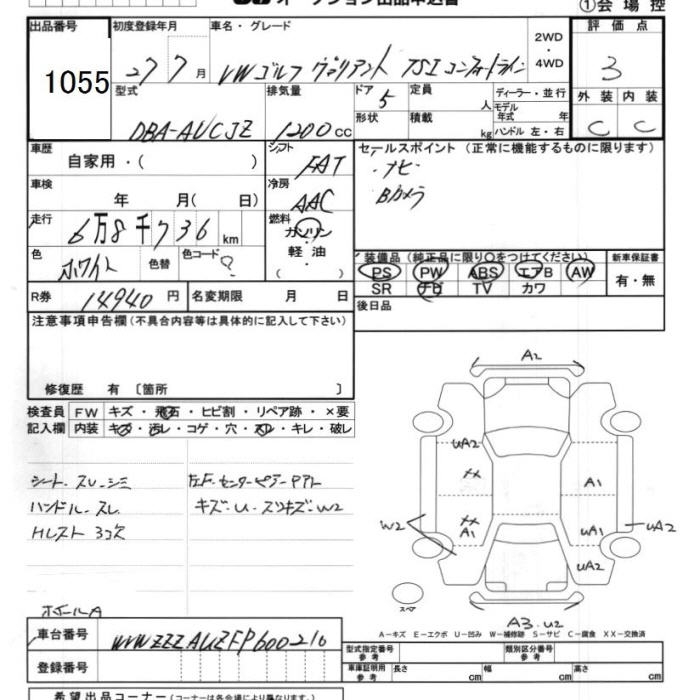 オークション出品申込書
①会場控
出品番号 初度登録年月 車名・グレード 2WD・4WD 評価点
1055 27 7月 VWゴルフ ヴァリアント TSIコンフォートライン 3
型式 排気量 ドア 5 定員 人 ディーラー・並行 外装 内装
DBA-AUCJZ 1200cc 形状 積載 kg モデル年式 年 ハンドル 左・右 C C
車歴 自家用・( ) シフト FAT セールスポイント(正常に機能するものに限ります)
車検 年 月( 日) 冷房 AAC ・ナビ
走行 6万8千736km 燃料 ガソリン・軽油・( ) Bカメラ
色 ホワイト 色替 色コード ? 装備品(純正品に限り○をつけてください) 新車保証書
PS PW ABS エアB AW 有・無
SR ナビ TV カワ
R券 14940円 名変期限 月 日 後日品
注意事項申告欄(不具合内容等は具体的に記入して下さい)
修復歴 有 〔箇所 〕
検査員記入欄 FW キズ・飛石・ヒビ割・リペア跡・×要
内装 キズ・汚レ・コゲ・穴・スレ・キレ・破レ
シート・スレ・シミ
ハンドル・スレ
Hレスト 3コ欠
キズ・U・スリキズ・W2
ホイールA
A2
UA2
XX
A1
W2
XX
A1
UA1
UA2
UA2
スペア
A3.U2
A-キズ E-エクボ U-凹み W-補修跡 S-サビ C-腐食 XX-交換済
車台番号 WVWZZZAUZFP600216
登録番号
型式指定番号 参考 類別区分番号 参考
車庫証明用 参考 長さ cm 幅 cm 高さ cm
希望出品コーナー(コーナーは各会場により異なります。)